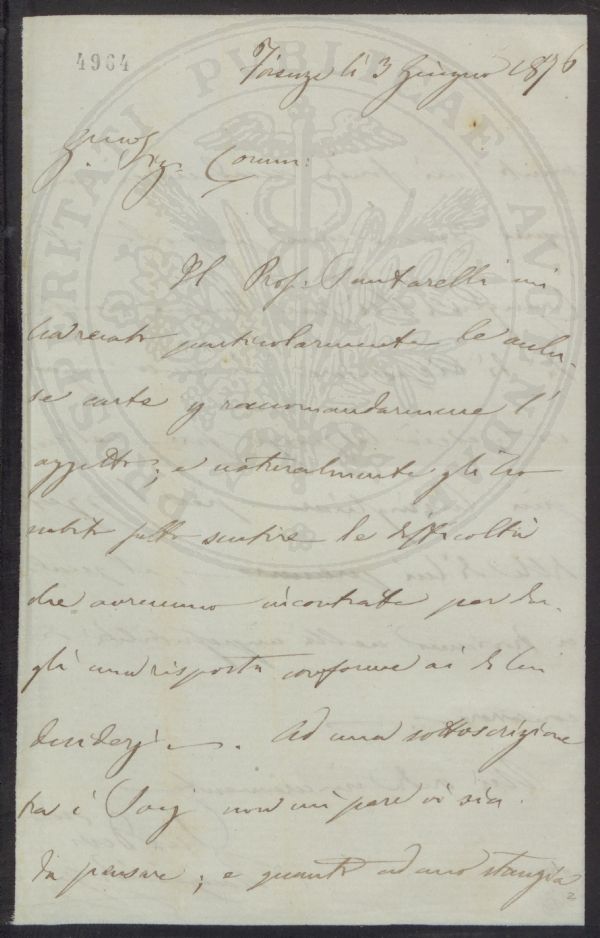 4964
Firenze lì 3 Giugno 1876
Sig. Comm:
Il Prof. Santarelli mi
ha recato particolarmente le aclu-
se carte p raccomandarmene l'
oggetto; e naturalmente gli ho
subito fatto sentire le difficoltà
che avremmo incontrate per da-
gli una risposta conforme ai di lui
desiderj. Ad una sottoscrizione
tra i Socj non mi pare vi sia
da pensare; e quanto ad uno stanzia
PROSPERITATI PUBLICAE AUGENDAE